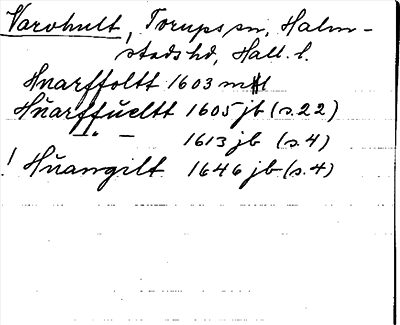 Varvhult, Torups sn, Halm-
stads hd, Hall. l.
Huarffoltt 1603 mtl
Hŭarffŭeltt 1605 jb (s.22)
—"— 1613 jb (s.4)
! Hŭarngilt 1646 jb (s.4)